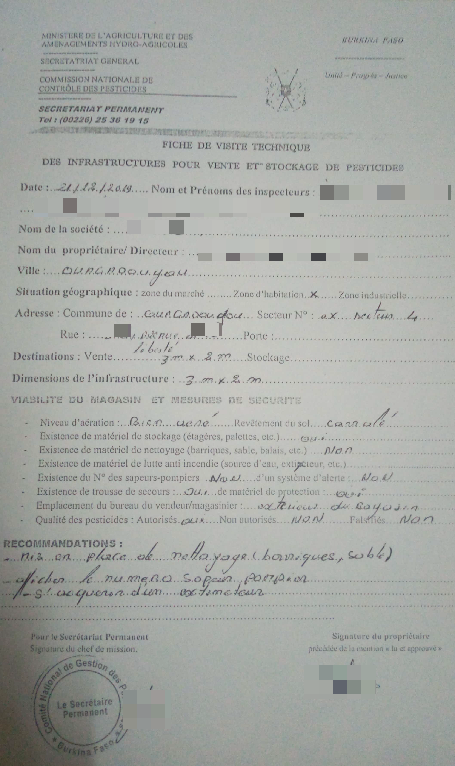 MINISTERE DE L'AGRICULTURE ET DES
AMENAGEMENTS HYDRO-AGRICOLES
BURKINA FASO
SECRETATRIAT GENERAL
Unité – Progrès – Justice
COMMISSION NATIONALE DE
CONTRÔLE DES PESTICIDES
SECRETARIAT PERMANENT
Tel : (00226) 25 36 19 15
FICHE DE VISITE TECHNIQUE
DES INFRASTRUCTURES POUR VENTE ET STOCKAGE DE PESTICIDES
Date : 21/12/2019 Nom et Prénoms des inspecteurs :
Nom de la société :
Nom du propriétaire/ Directeur :
Ville :
Situation géographique : zone du marché Zone d'habitation x Zone industrielle
Adresse : Commune de : Secteur N° : ex secteur 4
Rue : Porte :
Destinations : Vente 3m x 2m Stockage
Dimensions de l'infrastructure : 3m x 2m
VIABILITE DU MAGASIN ET MESURES DE SECURITE
- Niveau d'aération : Bien aéré Revêtement du sol carrelé
- Existence de matériel de stockage (étagères, palettes, etc.) oui
- Existence de matériel de nettoyage (barriques, sable, balais, etc.) Non
- Existence de matériel de lutte anti incendie (source d'eau, extincteur, etc.)
- Existence du N° des sapeurs-pompiers Non d'un système d'alerte : Non
- Existence de trousse de secours : oui de matériel de protection : oui
- Emplacement du bureau du vendeur/magasinier : exterieur du
- Qualité des pesticides : Autorisés oui Non autorisés NON Falsifiés Non
RECOMMANDATIONS :
- mis en place de nettoyage (barriques, sable)
- afficher le numero sapeur pompier
- s'acquerir d'un extincteur
Pour le Secrétariat Permanent
Signature du propriétaire
Signature du chef de mission.
précédée de la mention « lu et approuvé »
Comité National de Gestion des P
Le Secrétaire
Permanent
Burkina Faso